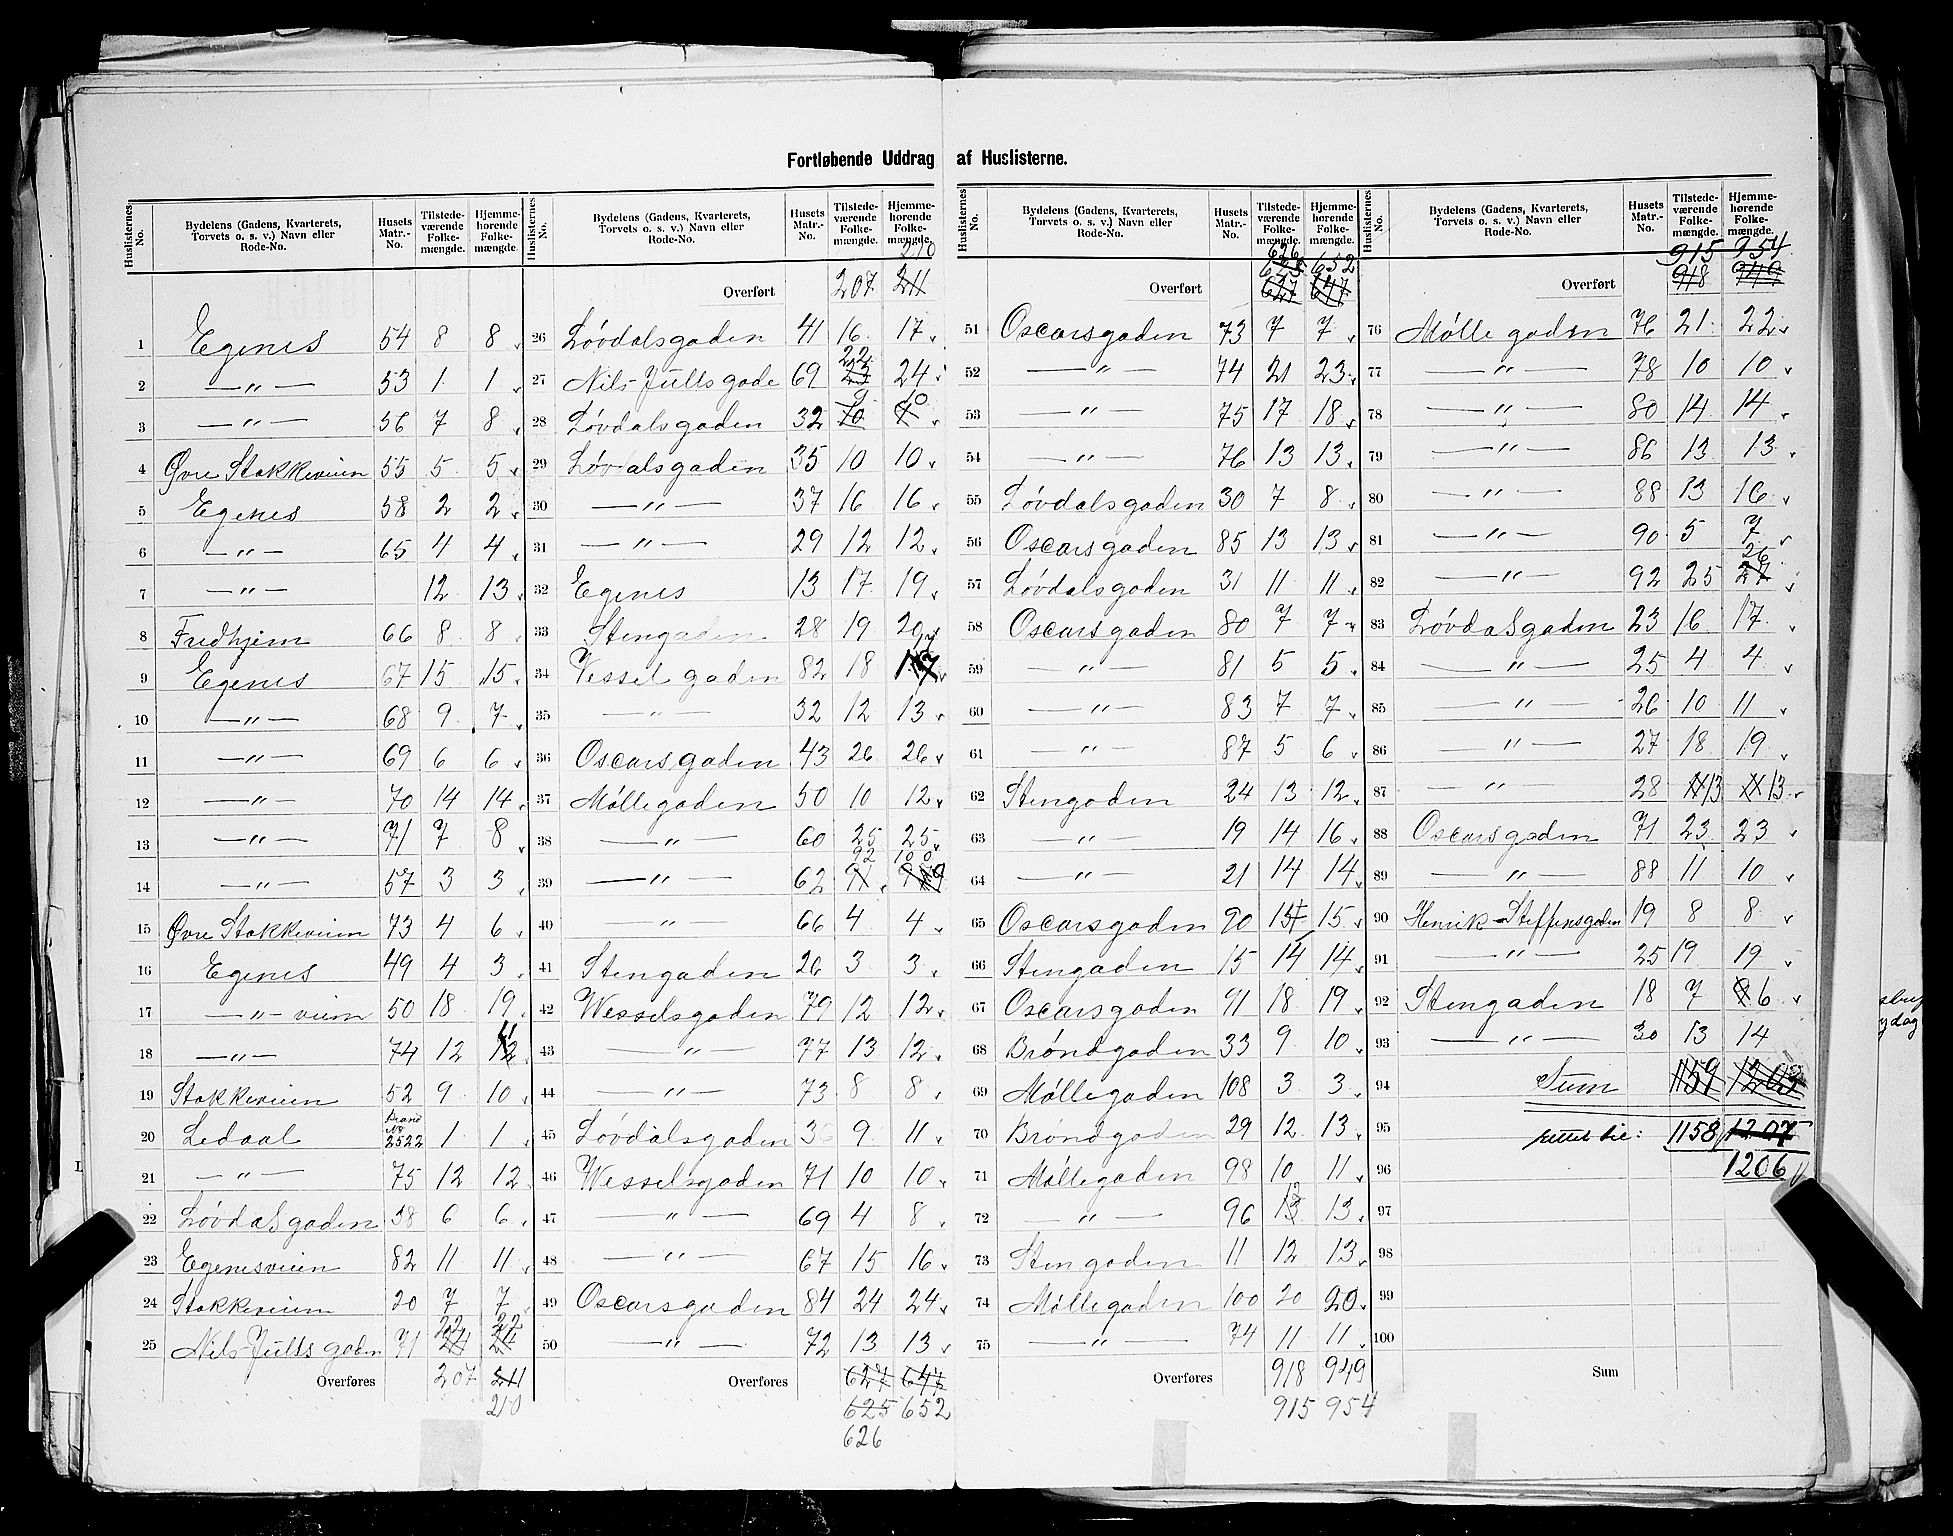 Fortløbende Uddrag af Huslisterne.
Huslisternes No. Bydelens (Gadens, Kvarterets, Torvets o. s. v.) Navn eller Rode-No. Husets Matr.-No. Tilstedeværende Folkemængde. Hjemmehørende Folkemængde.
1 Egenes 54 8 8
2 —〃— 53 1 1
3 —〃— 56 7 8
4 Øvre Stokkeveien 55 5 5
5 Egenes 58 2 2
6 —〃— 65 4 4
7 —〃— 12 13
8 Fredhjem 66 8 8
9 Egenes 67 15 15
10 —〃— 68 9 7
11 —〃— 69 6 6
12 —〃— 70 14 14
13 —〃— 71 7 8
14 —〃— 57 3 3
15 Øvre Stokkeveien 73 4 6
16 Egenes 49 4 3
17 —〃— veien 50 18 19
18 —〃— 74 12 12 11
19 Stokkeveien 52 9 10
20 Ledaal Brand No 2522 1 1
21 —〃— 75 12 12
22 Løvdalsgaden 38 6 6
23 Egenesveien 82 11 11
24 Stokkeveien 20 7 7
25 Nils Juelsgaden 71 24 22 24 22
Overføres 207 211
210
Huslisternes No. Bydelens (Gadens, Kvarterets, Torvets o. s. v.) Navn eller Rode-No. Husets Matr.-No. Tilstedeværende Folkemængde. Hjemmehørende Folkemængde.
210
Overført 207 211
26 Løvdalsgaden 41 16 17
27 Nils Juelsgade 69 23 22 24
28 Løvdalsgaden 32 10 9 10
29 Løvdalsgaden 35 10 10
30 —〃— 37 16 16
31 —〃— 29 12 12
32 Egenes 13 17 19
33 Stengaden 28 19 20
34 Vesselgaden 82 18 17
35 —〃— 32 12 13
36 Oscarsgaden 43 26 26
37 Møllegaden 50 10 12
38 —〃— 60 25 25
39 —〃— 62 91 92 100
40 —〃— 66 4 4
41 Stengaden 26 3 3
42 Wesselsgaden 79 12 12
43 —〃— 77 13 12
44 —〃— 73 8 8
45 Løvdalsgaden 36 9 11
46 Wesselsgaden 71 10 10
47 —〃— 69 4 8
48 —〃— 67 15 16
49 Oscarsgaden 84 24 24
50 —〃— 72 13 13
Overføres 627 647
625 652
626
Huslisternes No. Bydelens (Gadens, Kvarterets, Torvets o. s. v.) Navn eller Rode-No. Husets Matr.-No. Tilstedeværende Folkemængde. Hjemmehørende Folkemængde.
626
625 652
Overført 627 647
51 Oscarsgaden 73 7 7
52 —〃— 74 21 23
53 —〃— 75 17 18
54 —〃— 76 13 13
55 Løvdalsgaden 30 7 8
56 Oscarsgaden 85 13 13
57 Løvdalsgaden 31 11 11
58 Oscarsgaden 80 7 7
59 —〃— 81 5 5
60 —〃— 83 7 7
61 —〃— 87 5 6
62 Stengaden 24 13 12
63 —〃— 19 14 16
64 —〃— 21 14 14
65 Oscarsgaden 90 15 15
66 Stengaden 15 14 14
67 Oscarsgaden 91 18 19
68 Brøndgaden 33 9 10
69 Møllegaden 108 3 3
70 Brøndgaden 29 12 13
71 Møllegaden 98 10 11
72 —〃— 96 13 12 13
73 Stengaden 11 12 13
74 Møllegaden 100 20 20
75 —〃— 74 11 11
Overføres 918 949
915 954
Huslisternes No. Bydelens (Gadens, Kvarterets, Torvets o. s. v.) Navn eller Rode-No. Husets Matr.-No. Tilstedeværende Folkemængde. Hjemmehørende Folkemængde.
915 954
Overført 918 949
76 Møllegaden 76 21 22
77 —〃— 78 10 10
78 —〃— 80 14 14
79 —〃— 86 13 13
80 —〃— 88 13 16
81 —〃— 90 5 7
82 —〃— 92 25 27 26
83 Løvdalsgaden 23 16 17
84 —〃— 25 4 4
85 —〃— 26 10 11
86 —〃— 27 18 19
87 —〃— 28 13 13
88 Oscarsgaden 71 23 23
89 —〃— 88 11 10
90 Henrik Steffensgaden 19 8 8
91 —〃— 25 19 19
92 Stengaden 18 7 6
93 —〃— 30 13 14
94 Sum 1159 1203
95 rettet til: 1158 1207
96 1206
97
98
99
100
Sum